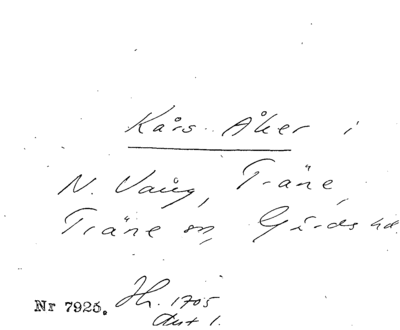 Kårs Åker i
N. Vång, Träne,
Träne sn, Gärds hd.
Nr 7925. Jh. 1705
Akt 1.